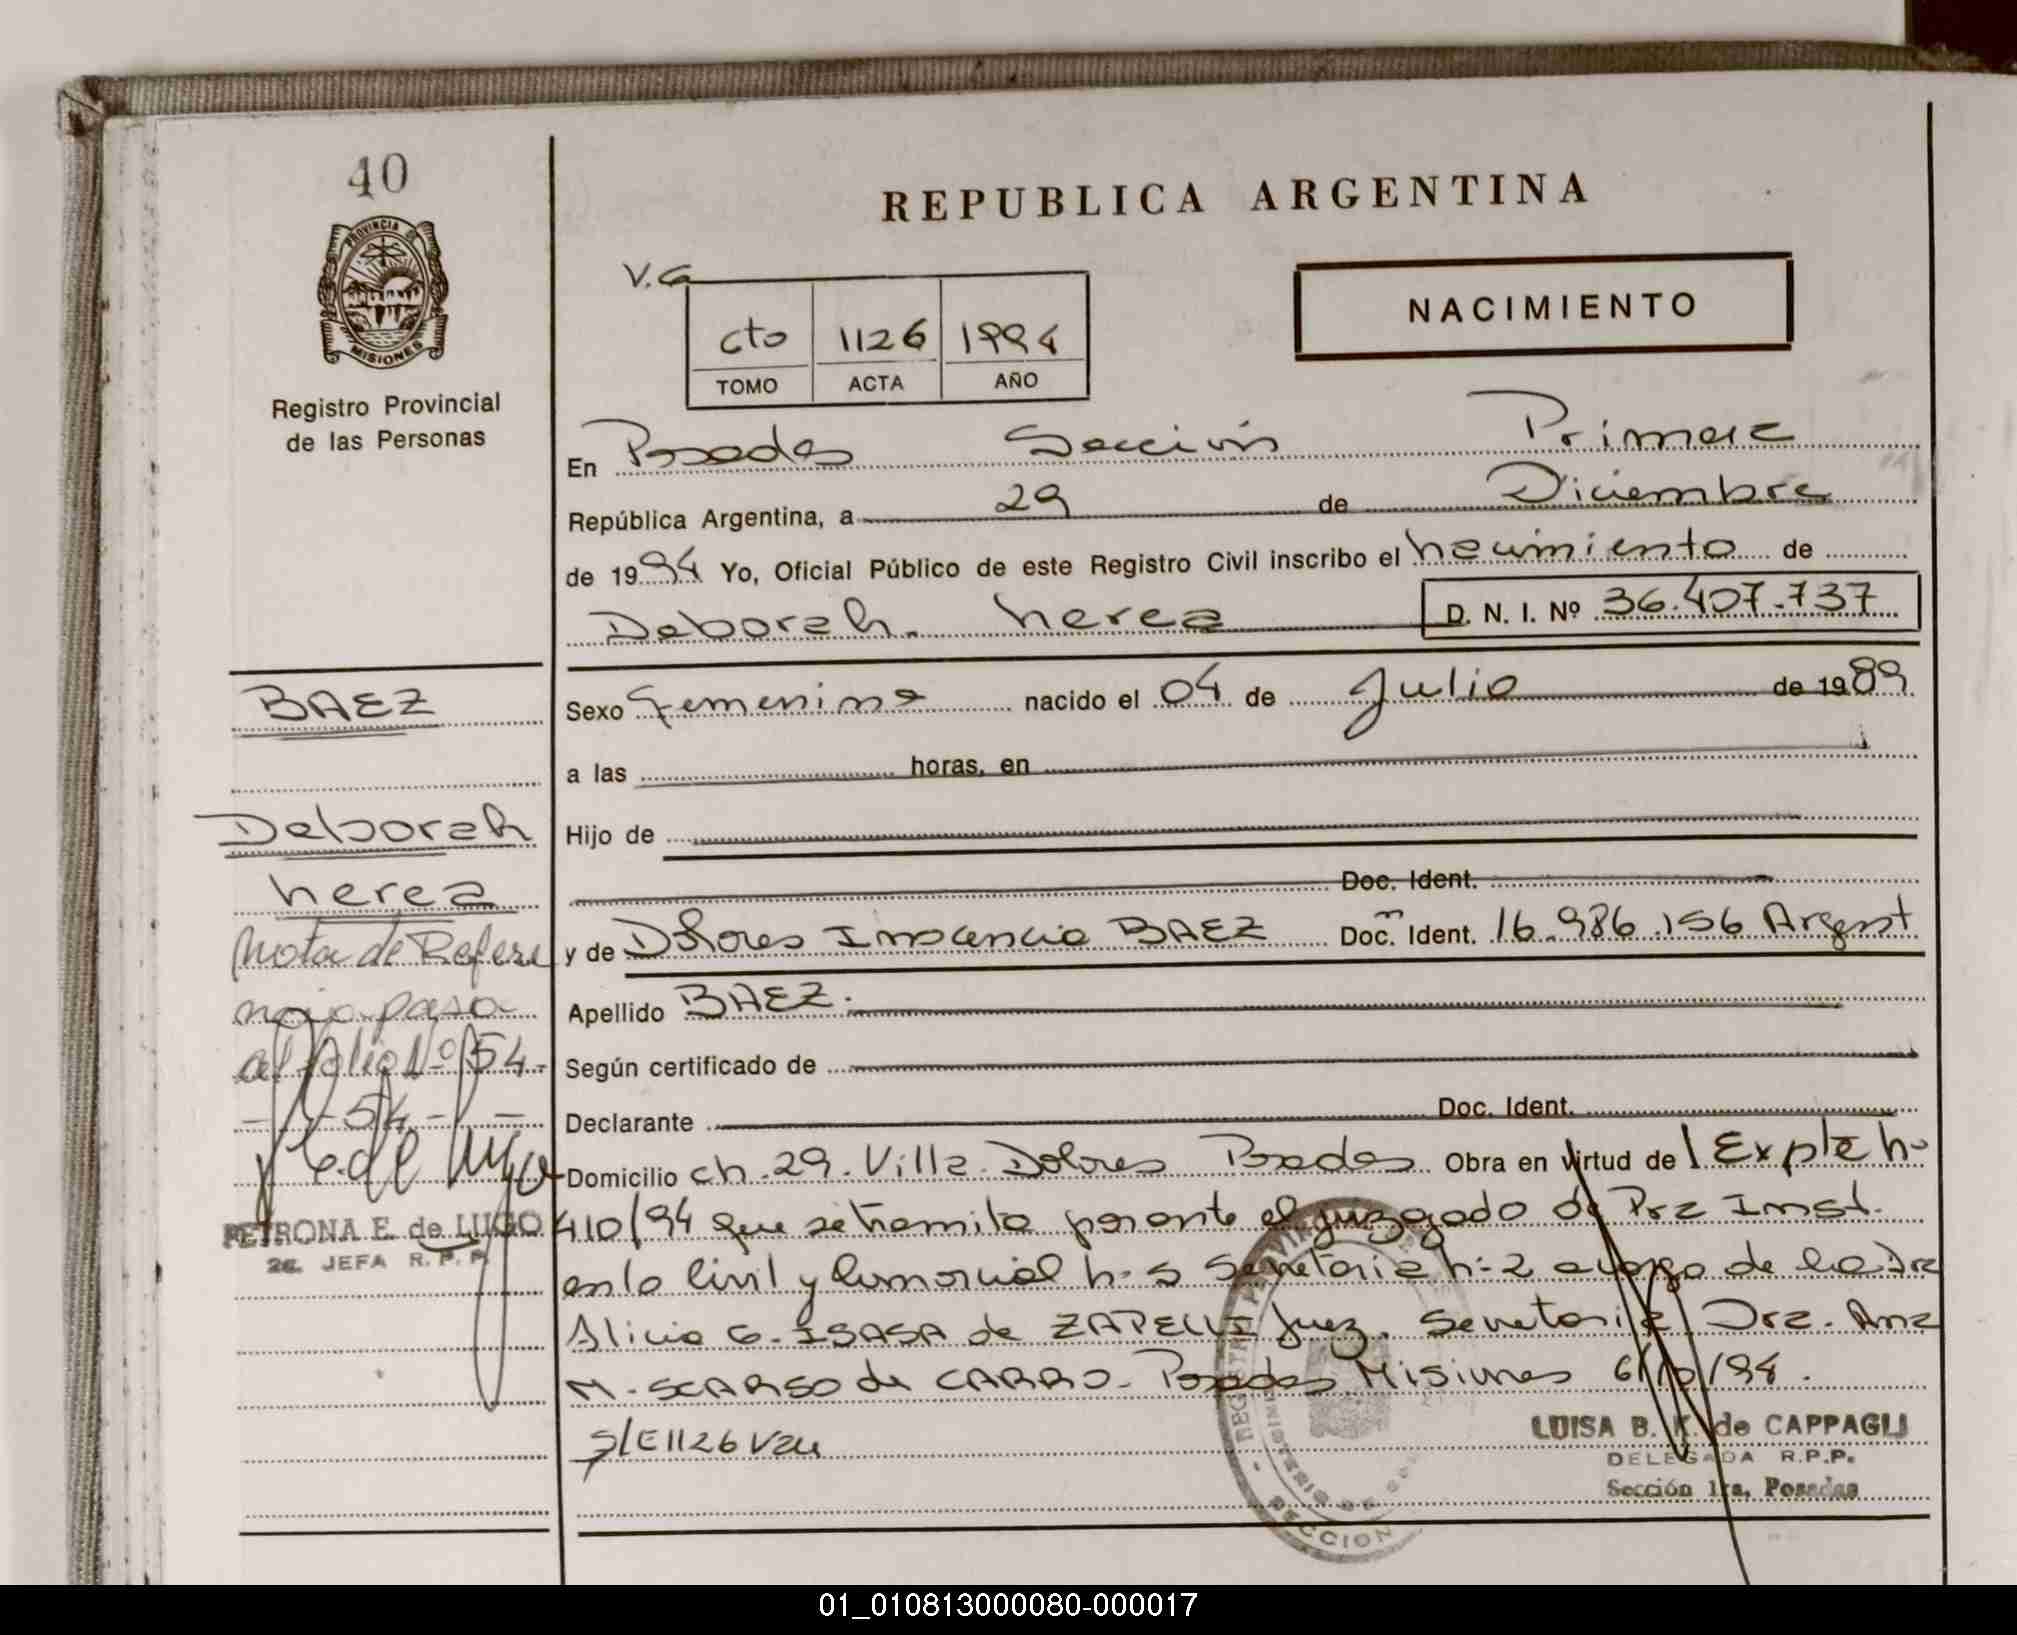 40
PROVINCIA DE
MISIONES
Registro Provincial
de las Personas
REPUBLICA ARGENTINA
V.G
cto 1126 1994
TOMO ACTA AÑO
NACIMIENTO
En Posadas Sección Primera
República Argentina, a 29 de Diciembre
de 1994 Yo, Oficial Público de este Registro Civil inscribo el nacimiento de
Deborah nerea D. N. I. Nº 36.407.737
Sexo Femenino nacido el 04 de Julio de 1989
a las horas, en
Hijo de
Doc. Ident.
y de Dolores Inocencia BAEZ Doc. Ident. 16.986.156 Argent
Apellido BAEZ.
Según certificado de
Declarante Doc. Ident.
Domicilio ch. 29. Villa Dolores Posadas Obra en virtud de Expte n=
410/94 que se tramita por ante el juzgado de Pra Inst.
en lo Civil y Comercial n= 5 Secretaria n=2 a cargo de la Dra
Alicia G. ISASA de ZAPELLI Juez. Secretaria Dra. Ana
M. SCARSO de CARRO- Posadas Misiones 6/10/94.
S/E 1126 Vau
LUISA B. K. de CAPPAGLI
DELEGADA R.P.P.
Sección 1ra, Posadas
BAEZ
Deborah
nerea
Nota de Refere
ncia pasa
al folio Nº 54.-
- - 54 - -
PETRONA E. de LUGO
2a. JEFA R. P. P.
SECCION
01_010813000080-000017